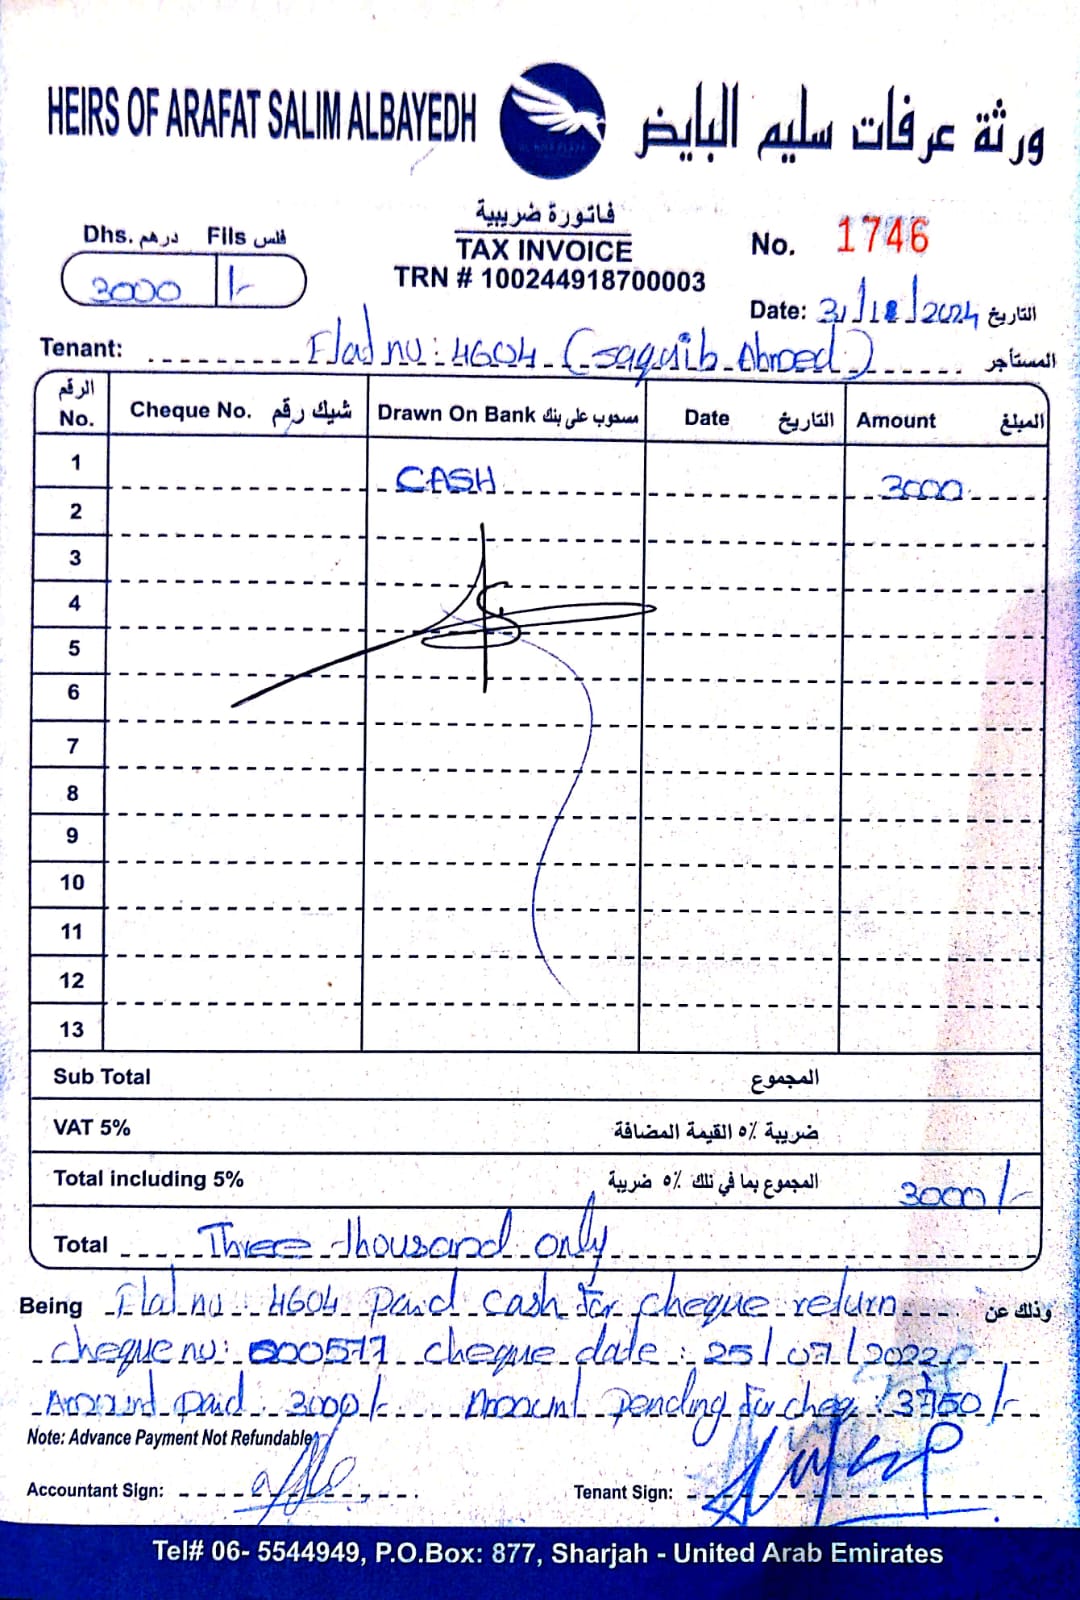 HEIRS OF ARAFAT SALIM ALBAYEDH ورثة عرفات سليم البايض
فاتورة ضريبية
TAX INVOICE
TRN # 100244918700003
Dhs. درهم Fils فلس
3000 /-
No. 1746
Date: 31/12/2024 التاريخ
Tenant: Flat no: 4604 (Saquib Ahmed) المستأجر
الرقم No. Cheque No. شيك رقم Drawn On Bank مسحوب على بنك Date التاريخ Amount المبلغ
1 CASH 3000
2
3
4
5
6
7
8
9
10
11
12
13
Sub Total المجموع
VAT 5% ضريبة ٥٪ القيمة المضافة
Total including 5% المجموع بما في تلك ٥٪ ضريبة 3000/-
Total Three thousand only
Being Flat no: 4604 paid cash for cheque return وذلك عن
cheque no: 000577 cheque date: 25/07/2022
Amount paid: 3000/- Amount pending for cheq: 3750/-
Note: Advance Payment Not Refundable
Accountant Sign: Tenant Sign:
Tel# 06- 5544949, P.O.Box: 877, Sharjah - United Arab Emirates